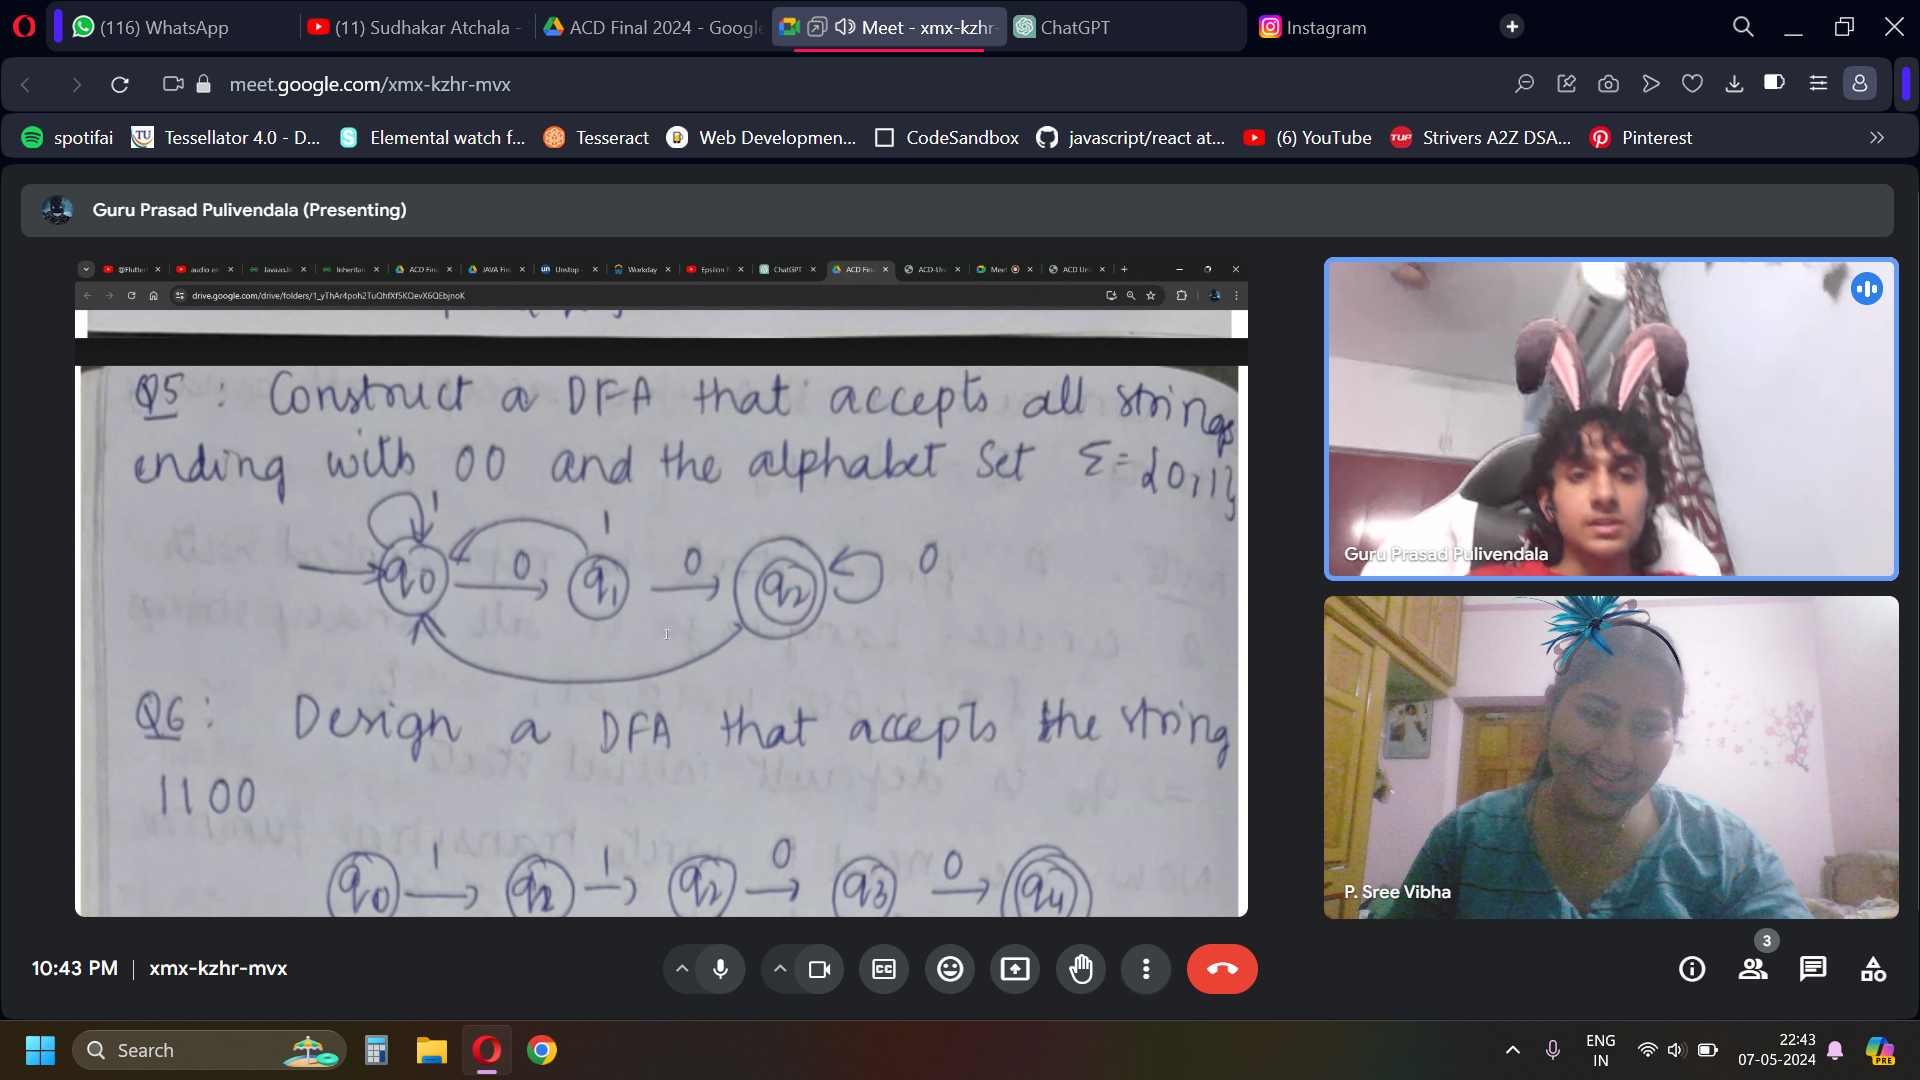 (116) WhatsApp
(11) Sudhakar Atchala -
ACD Final 2024 - Google
Meet - xmx-kzhr-
ChatGPT
Instagram
meet.google.com/xmx-kzhr-mvx
spotifai
Tessellator 4.0 - D...
Elemental watch f...
Tesseract
Web Developmen...
CodeSandbox
javascript/react at...
(6) YouTube
Strivers A2Z DSA...
Pinterest
Guru Prasad Pulivendala (Presenting)
@Flutter
audio en
Java.io.In
Inheritan
ACD Fin
JAVA Fin
Unstop -
Workday
Epsilon N
ChatGPT
ACD Fin
ACD-Un
Meet
ACD Un
drive.google.com/drive/folders/1_yThAr4poh2TuQhfXf5KQevX6QEbjnoK
Q5 : Construct a DFA that accepts all strings
ending with 00 and the alphabet set Σ={0,1}
1
1
q0 0 q1 0 q2 0
Q6 : Design a DFA that accepts the string
1100
1 1 0 0
q0 q2 q2 q3 q4
Guru Prasad Pulivendala
P. Sree Vibha
10:43 PM | xmx-kzhr-mvx
CC
3
Search
ENG
IN
22:43
07-05-2024
PRE